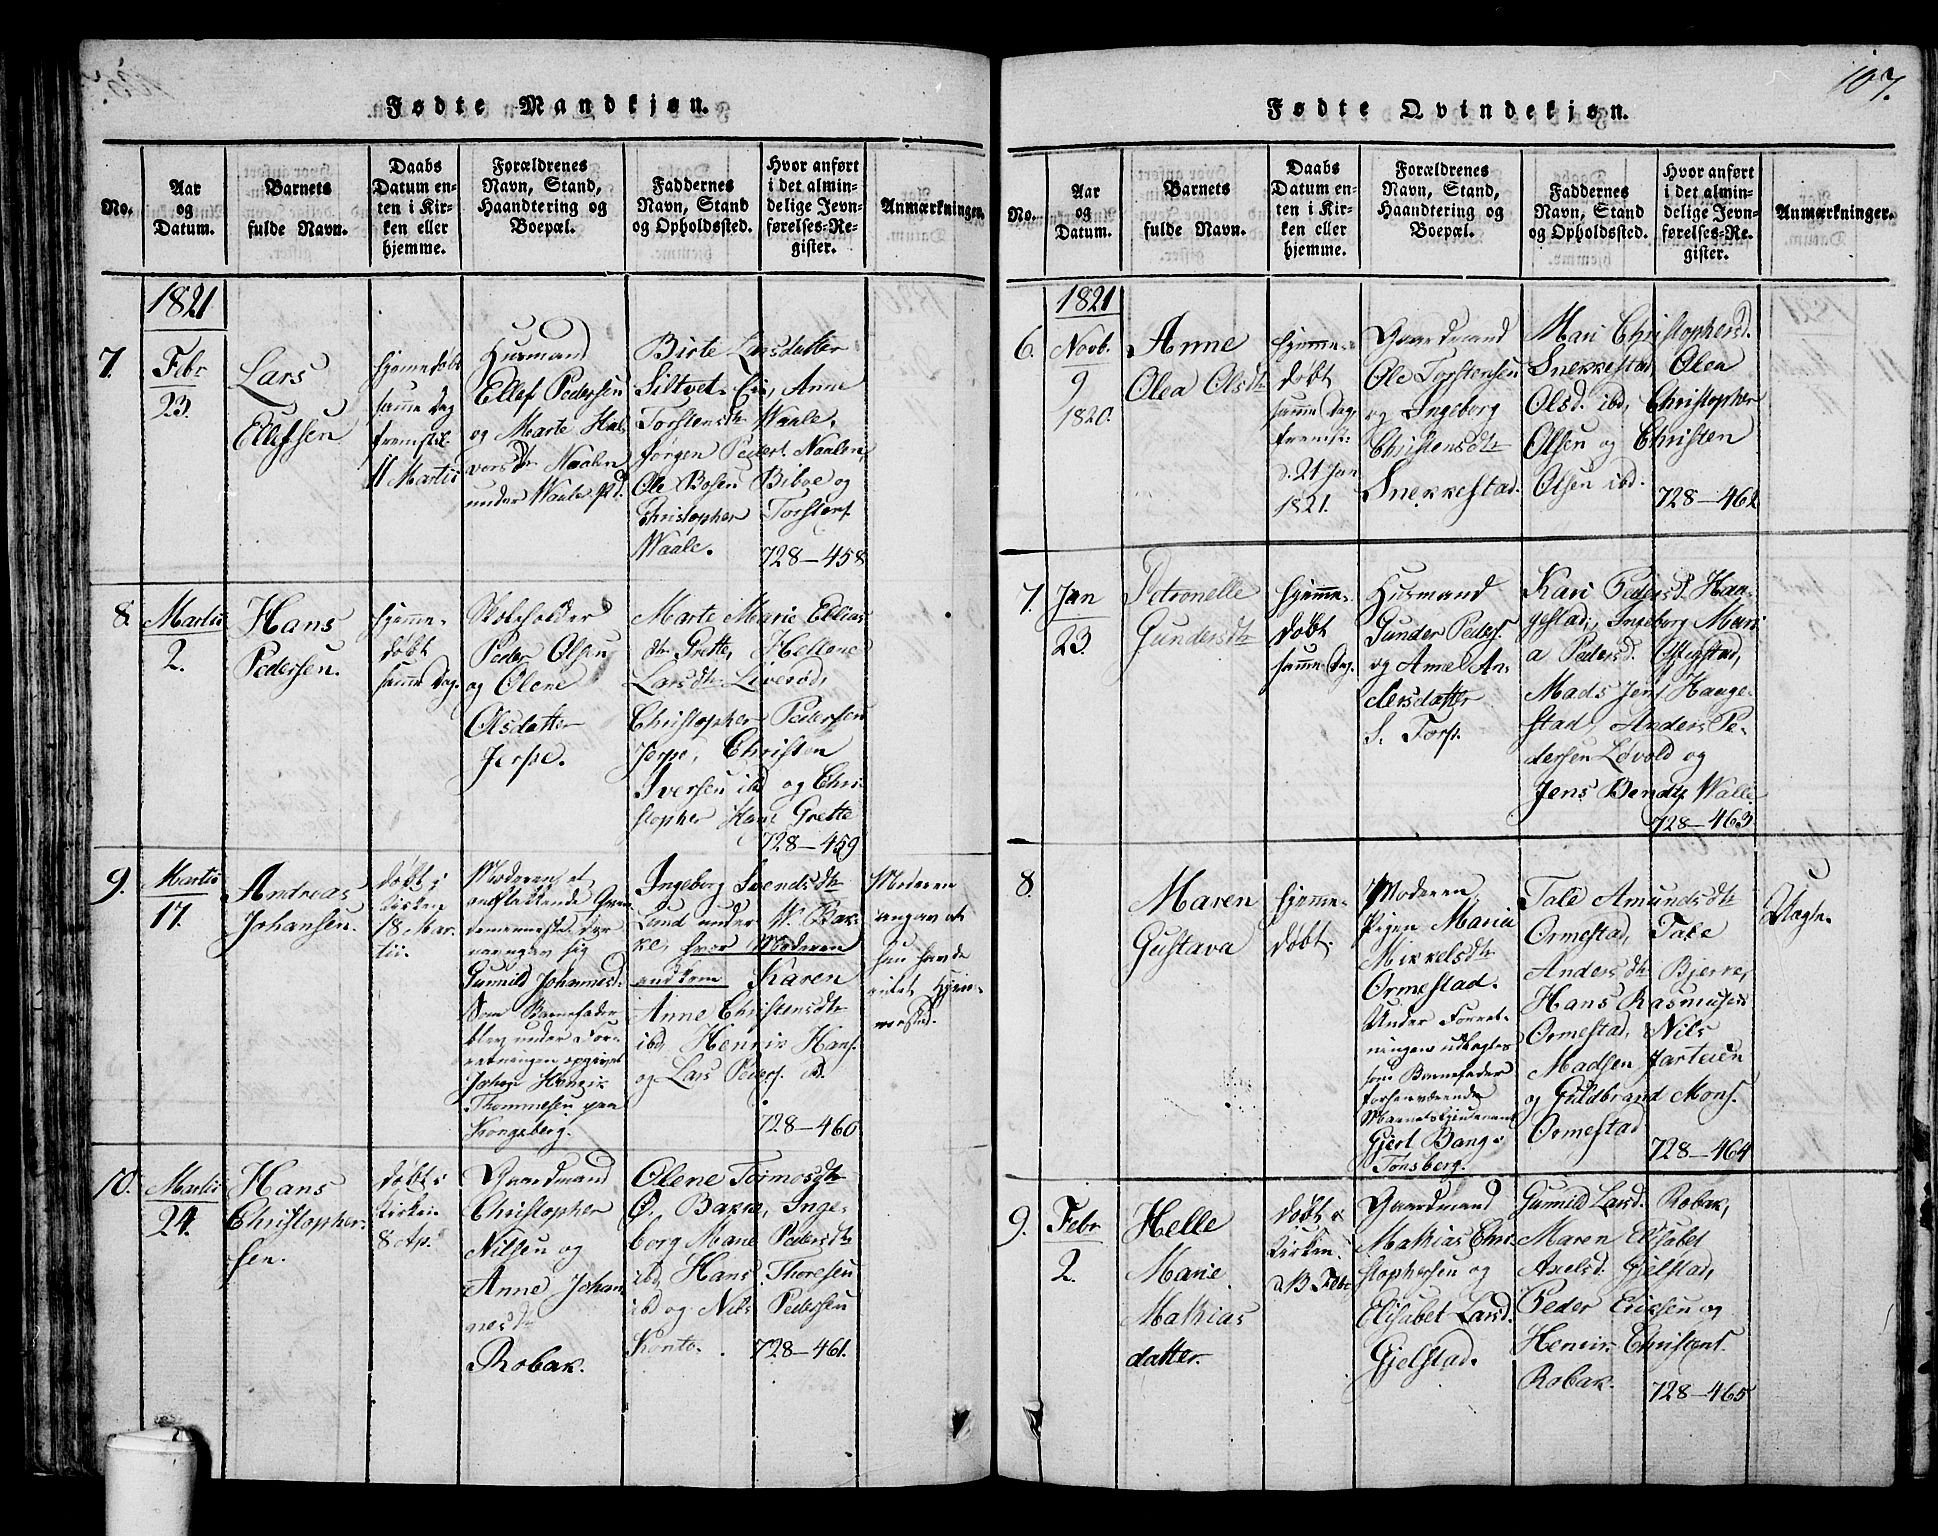 Fødte Mandkjøn.
No.
Aar
og
Datum.
Barnets
fulde Navn.
Daabs
Datum en-
ten i Kir-
ken eller
hjemme.
Forældrenes
Navn, Stand,
Haandtering og
Boepæl.
Faddernes
Navn, Stand
og Opholdssted.
Hvor anført
i det almin-
delige Jevn-
førelses-Re-
gister.
Anmærkninger.
1821
7.
Febr
23.
Lars
Ellefsen
hjemedøbt
samme Dag
fremstil
11 Martii
Husmand
Ellef Pedersen
og Marte Hal
vorsdtr Naalen
under Waale pd.
Birte Larsdatter
Siltvet Anne
Torstensdtr Waale,
Jørgen Peders. Naalen,
Ole Bosen Biboe og
Christopher Torstens.
Waale.
728-458
8.
Martii
2.
Hans
Pedersen.
hjemme-
døbt
samme Dag.
Skoleholder
Peder Olsen
og Olene
Olsdatter
Jerpe.
Marte Marie Ellias
dtr Grette, Hellene
Larsdtr Liverød,
Christopher Pedersen
Jerpe, Christen
Iversen ibd og Chri-
stopher Hans Grette
728-459
9.
Martii
17.
Andreas
Johansen.
døbt i
Kirken
18 Mar-
tii.
Moderen et
omflakkende Qvin
demenneske der
navngav sig
Gunild Johannesd.
Som Barnefader
blev under For-
retningen opgivet
Johan Henrik
Thommesen paa
Kongsberg.
Ingeborg Svendsdtr
Lund under W. Bak-
ke, hvor Moderen
ankom Karen
Anne Christensdtr
ibd, Henrik Hans.
og Lars Peders. ibd.
728-460
Moderen
angav at
hun havde
intet Hjem-
mested.
10.
Martii
24.
Hans
Christopher-
sen.
døbt i
Kirken
8 Ap.
Gaardmand
Christopher
Nilsen og
Anne Johan
nesdtr
Robak.
Olene Tormosdtr
Ø. Bakke, Inge-
borg Marie Pedersdtr
ibd, Hans Thoresen
ibd og Nils Pedersen
728-461.
107.
Fødte Qvindekjøn.
No.
Aar
og
Datum.
Barnets
fulde Navn.
Daabs
Datum en-
ten i Kir-
ken eller
hjemme.
Forældrenes
Navn, Stand,
Haandtering og
Boepæl.
Faddernes
Navn, Stand
og Opholdssted.
Hvor anført
i det almin-
delige Jevn-
førelses-Re-
gister.
Anmærkninger.
1821
6.
Novb.
9
1820.
Anne
Olea Olsdtr
hjemme-
døbt
samme Dag
fremst:
d. 21 Jan
1821.
Gaardmand
Ole Torstensen
og Ingeborg
Christensdtr
Snekkestad.
Mari Christophersd.
Snekkestad, Olea
Olsd. ibd, Christopher
Olsen og Christen
Olsen ibd.
728-462
7.
Jan
23.
Petronelle
Gundersdtr
hjemme-
døbt
samme Dag.
Husmand
Gunder Peders.
og Amel An-
dersdatter
S. Torp.
Kari Pedersd. Haa-
gestad, Ingeborg Mari
a Pedersd.
Mads Jens Haage-
stad, Anders Pe-
dersen Løvold og
Jens Bendtz Walle
728-463
8.
Maren
Gustava
hjemme-
døbt.
Moderen,
Pigen Maria
Mikkelsdtr
Ormestad.
Under Forret-
ningen udlagtes
som Barnefader
forhenværende
Gjert Bang i
Tønsberg.
Tale Amundsdtr
Ormestad, Tale
Andersdtr Bjerke,
Hans Rasmusen
Ormestad, Nils
Madsen Jarteien
og Guldbrand Mons.
Ormestad
728-464
Uægte.
9.
Febr
2.
Helle
Marie
Mathias
datter.
døbt i
Kirken
Gaardmand
Mathias Chri-
stophersen og
Elisabet Larsd.
Gjelstad.
Gunild Larsd. Robak,
Maren Elisabet
Axelsd. Gjelstad,
Peder Ericksen og
Henrik Christens.
Robak.
728-465